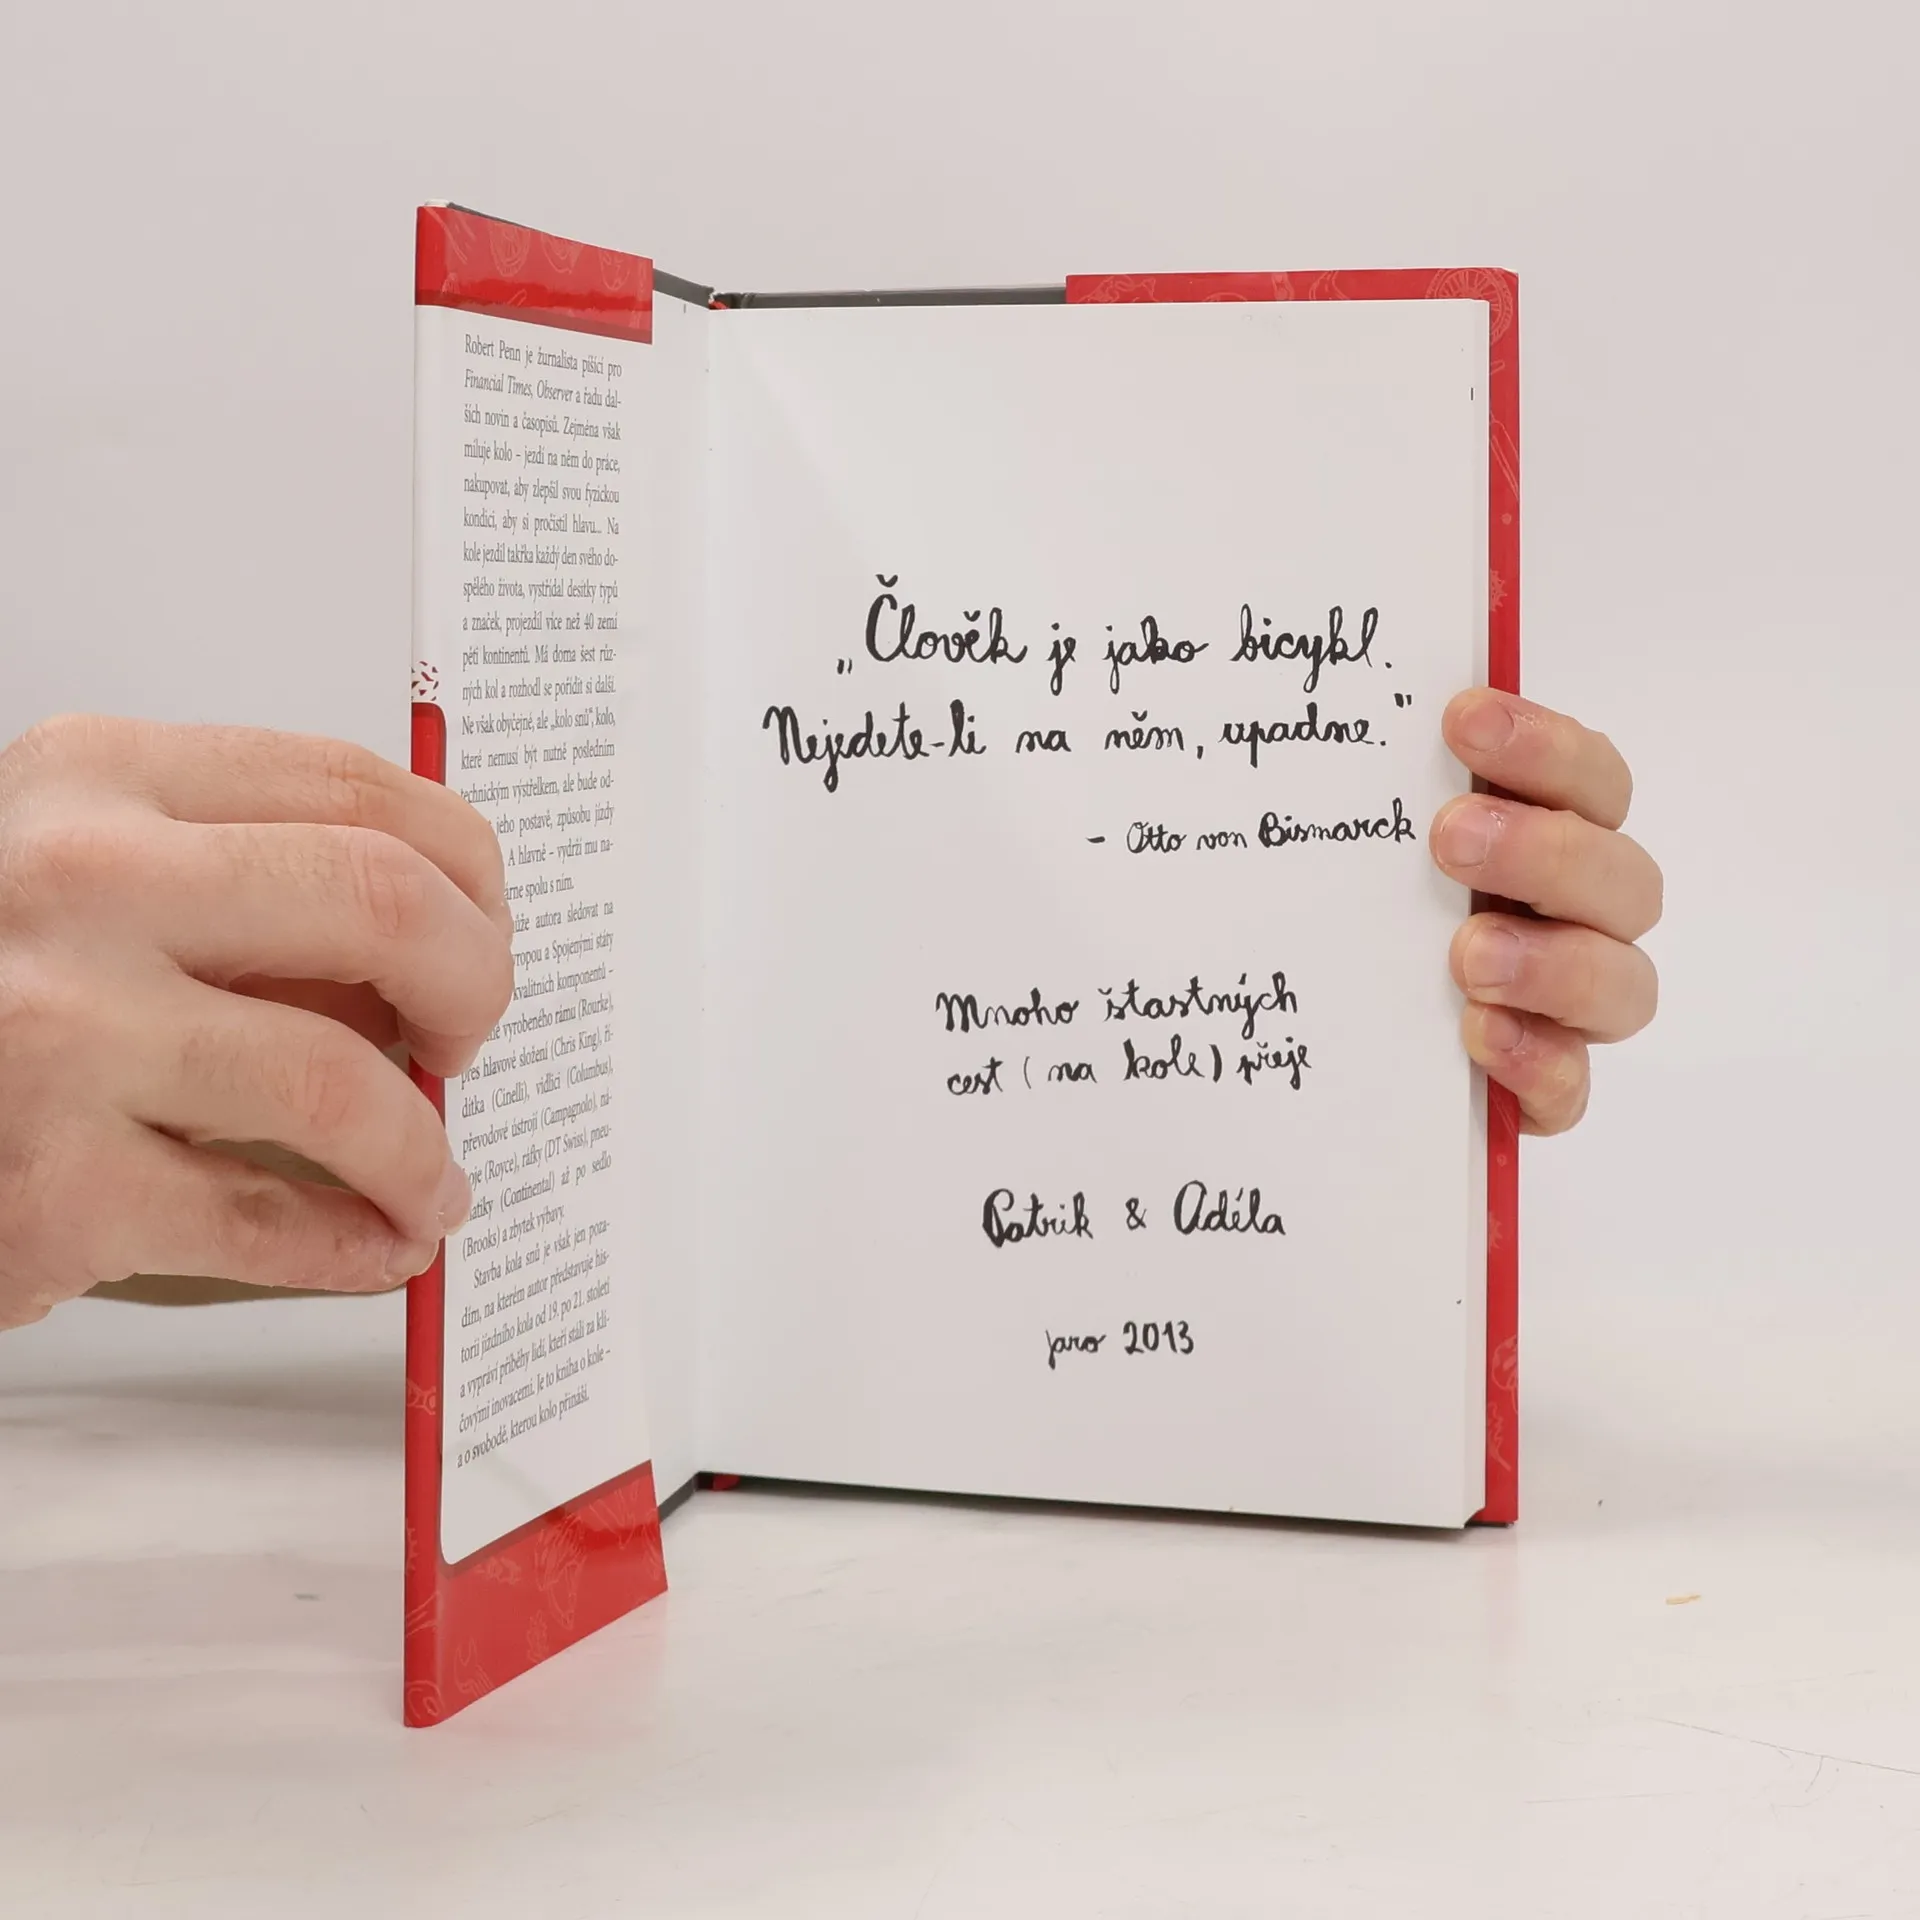 Robert Penn je žurnalista píšící pro
Financial Times, Observer a řadu dal-
ších novin a časopisů. Zejména však
miluje kolo – jezdí na něm do práce,
nakupovat, aby zlepšil svou fyzickou
kondici, aby si pročistil hlavu... Na
kole jezdil takřka každý den svého do-
spělého života, vystřídal desítky typů
a značek, projezdil více než 40 zemí
pěti kontinentů. Má doma šest růz-
ných kol a rozhodl se pořídit si další.
Ne však obyčejné, ale „kolo snů“, kolo,
které nemusí být nutně posledním
technickým výstřelkem, ale bude od-
jeho postavě, způsobu jízdy
A hlavně – vydrží mu na-
árne spolu s ním.
ůže autora sledovat na
vropou a Spojenými státy
kvalitních komponentů –
vyrobeného rámu (Rourke),
přes hlavové složení (Chris King), ří-
dítka (Cinelli), vidlici (Columbus),
převodové ústrojí (Campagnolo), ná-
boje (Royce), ráfky (DT Swiss), pneu-
matiky (Continental) až po sedlo
(Brooks) a zbytek výbavy.
Stavba kola snů je však jen poza-
dím, na kterém autor představuje his-
torii jízdního kola od 19. po 21. století
a vypráví příběhy lidí, kteří stáli za klí-
čovými inovacemi. Je to kniha o kole –
a o svobodě, kterou kolo přináší.
„Člověk je jako bicykl.
Nejedete-li na něm, upadne."
- Otto von Bismarck
Mnoho šťastných
cest (na kole) přeje
Patrik & Adéla
jaro 2013